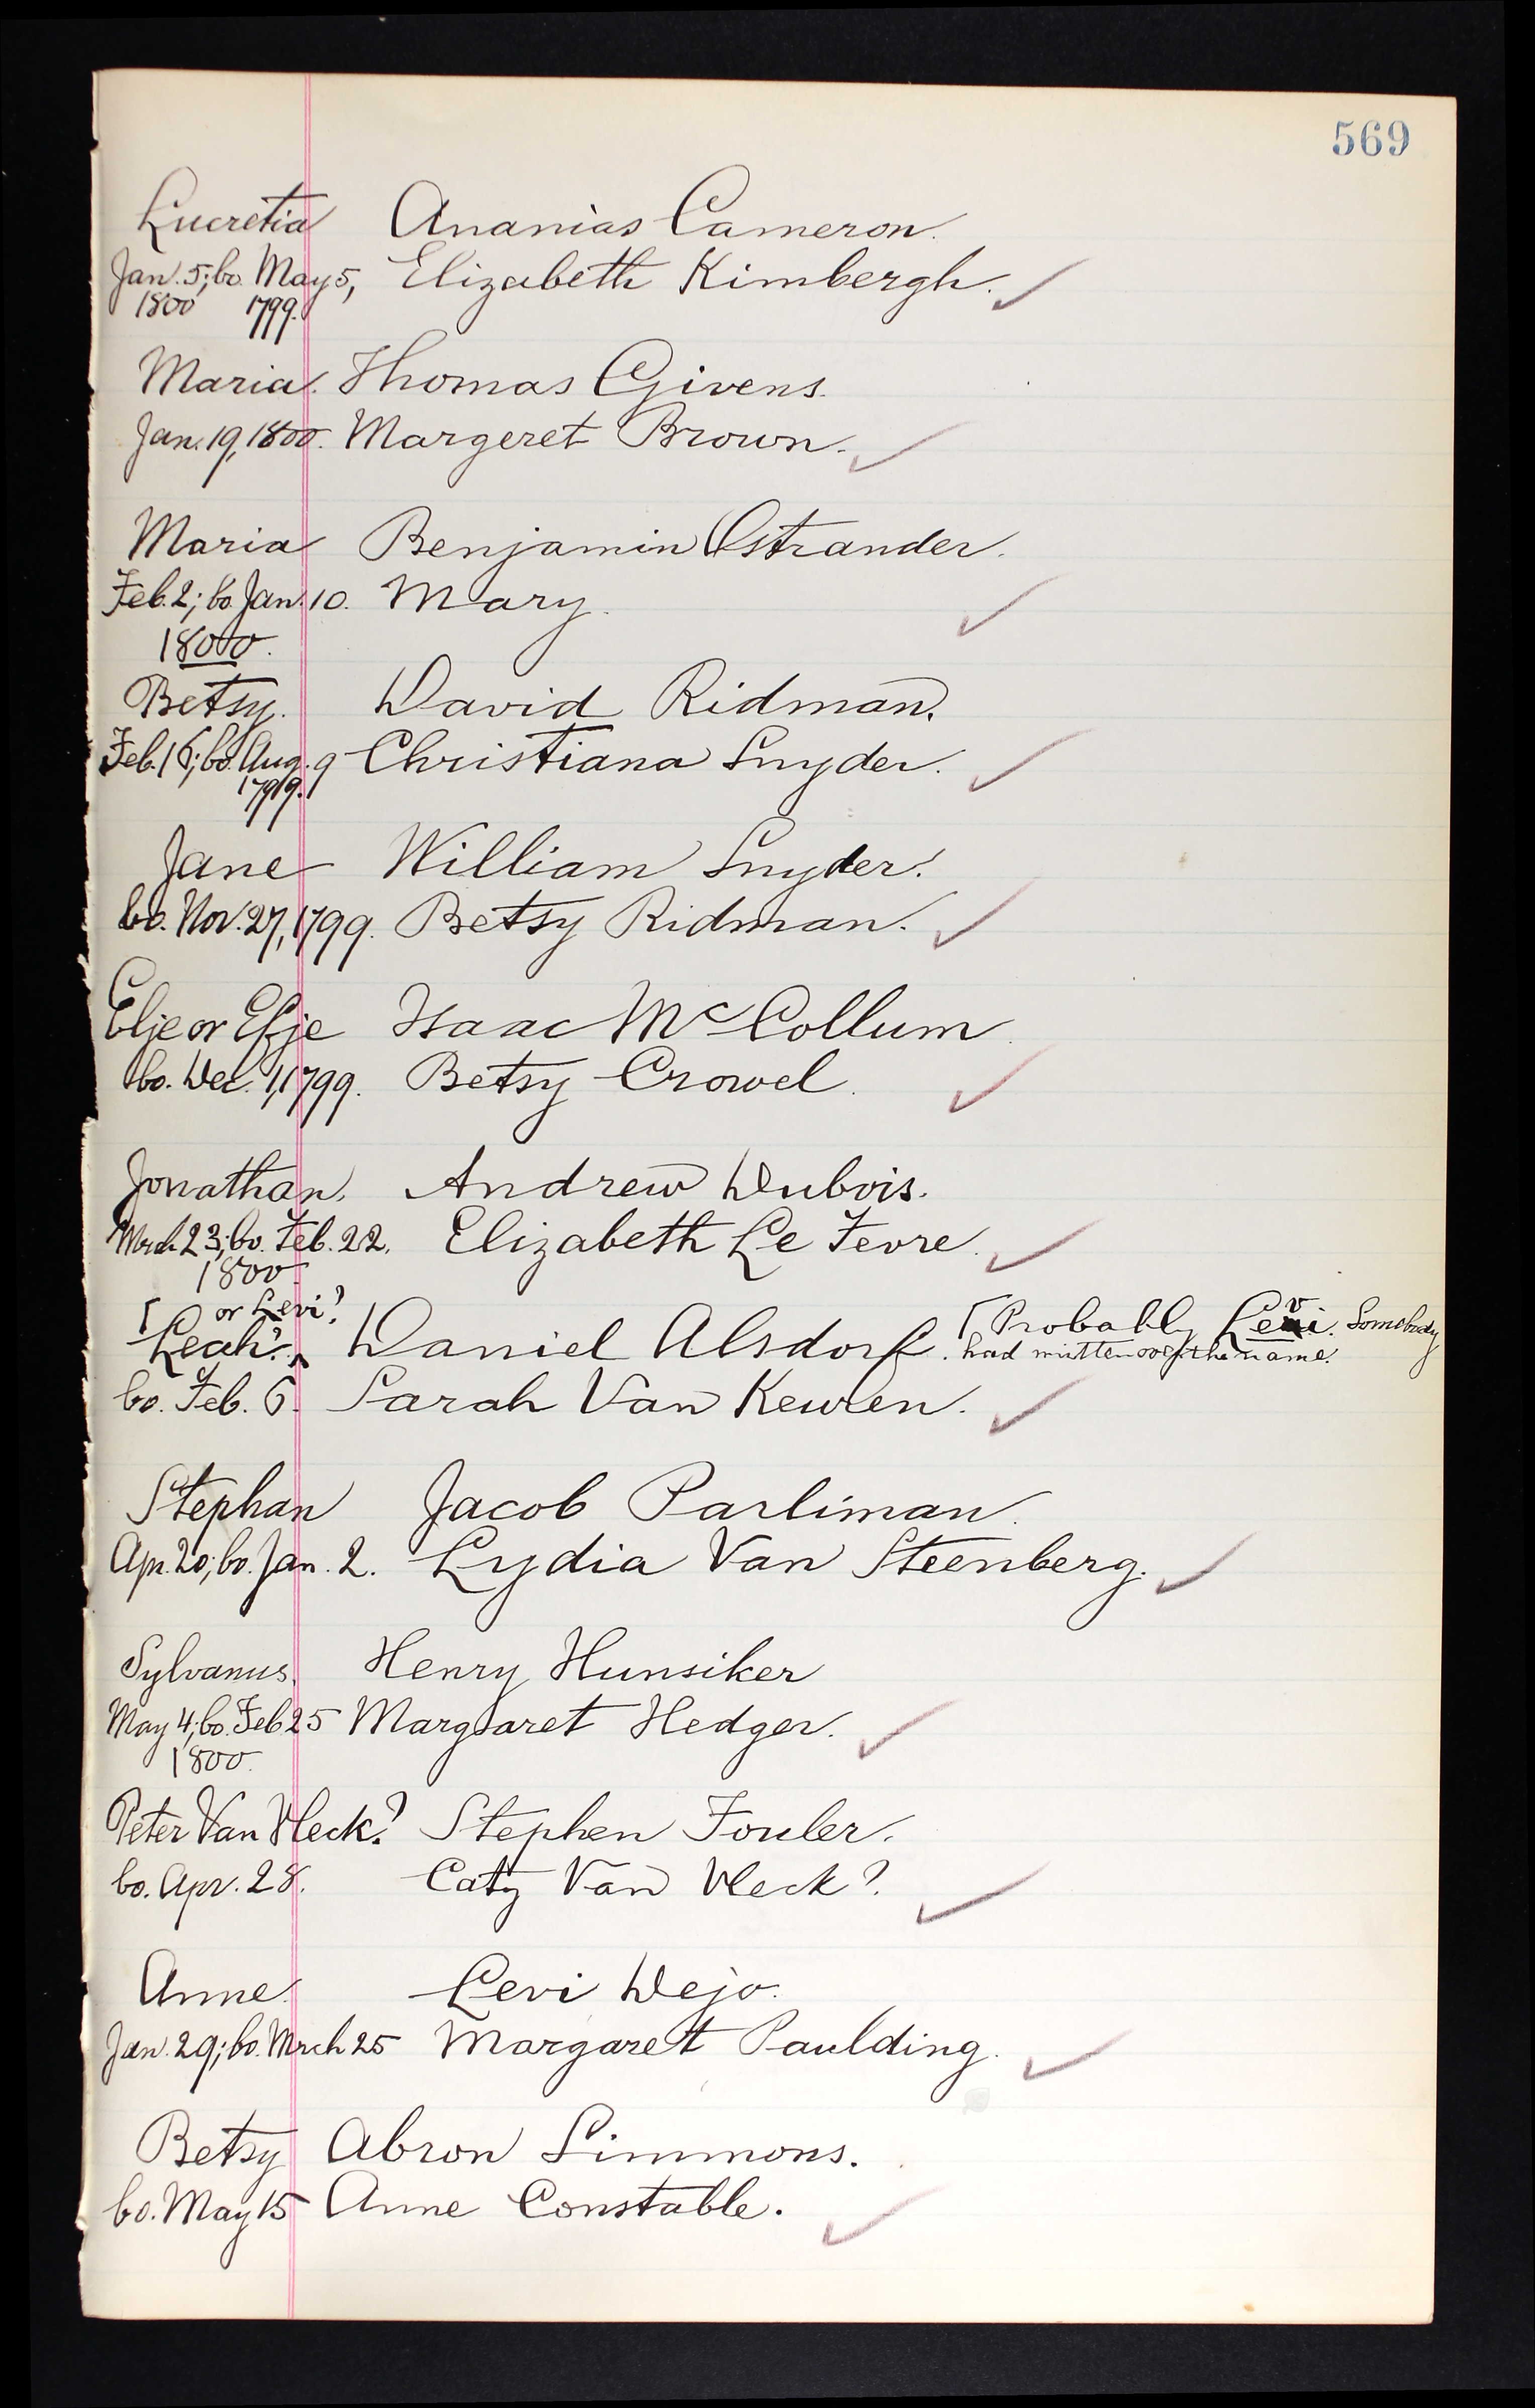 569
Lucretia Ananias Cameron.
Jan. 5; bo. May 5, Elizabeth Kimbergh.
1800 1799.
Maria. Thomas Givens.
Jan. 19, 1800. Margeret Brown.
Maria Benjamin Ostrander.
Feb. 2; bo. Jan. 10. Mary.
1800.
Betsy. David Ridman.
Feb. 16; bo. Aug. 9 Christiana Snyder.
1799.
Jane William Snyder.
bo. Nov. 27, 1799. Betsy Ridman.
Elje or Efje Isaac McCollum.
bo. Dec. 1, 1799. Betsy Crowel.
Jonathan. Andrew Dubois.
Mrch 23; bo. Feb. 22. Elizabeth Le Fevre.
1800
[ or Levi?
Leah? Daniel Alsdorf. [Probably Levi. Somebody
had written over the name.
bo. Feb. 6. Sarah Van Keuren.
Stephan Jacob Parliman.
Apr. 20; bo. Jan. 2. Lydia Van Steenberg.
Sylvanus. Henry Hunsiker
May 4; bo. Feb 25 Margaret Hedger.
1800.
Peter Van Vleck? Stephen Fouler.
bo. Apr. 28. Caty Van Vleck?.
Anne. Levi Dejo.
Jan. 29; bo. Mrch 25 Margaret Paulding.
Betsy Abron Simmons.
bo. May 15 Anne Constable.